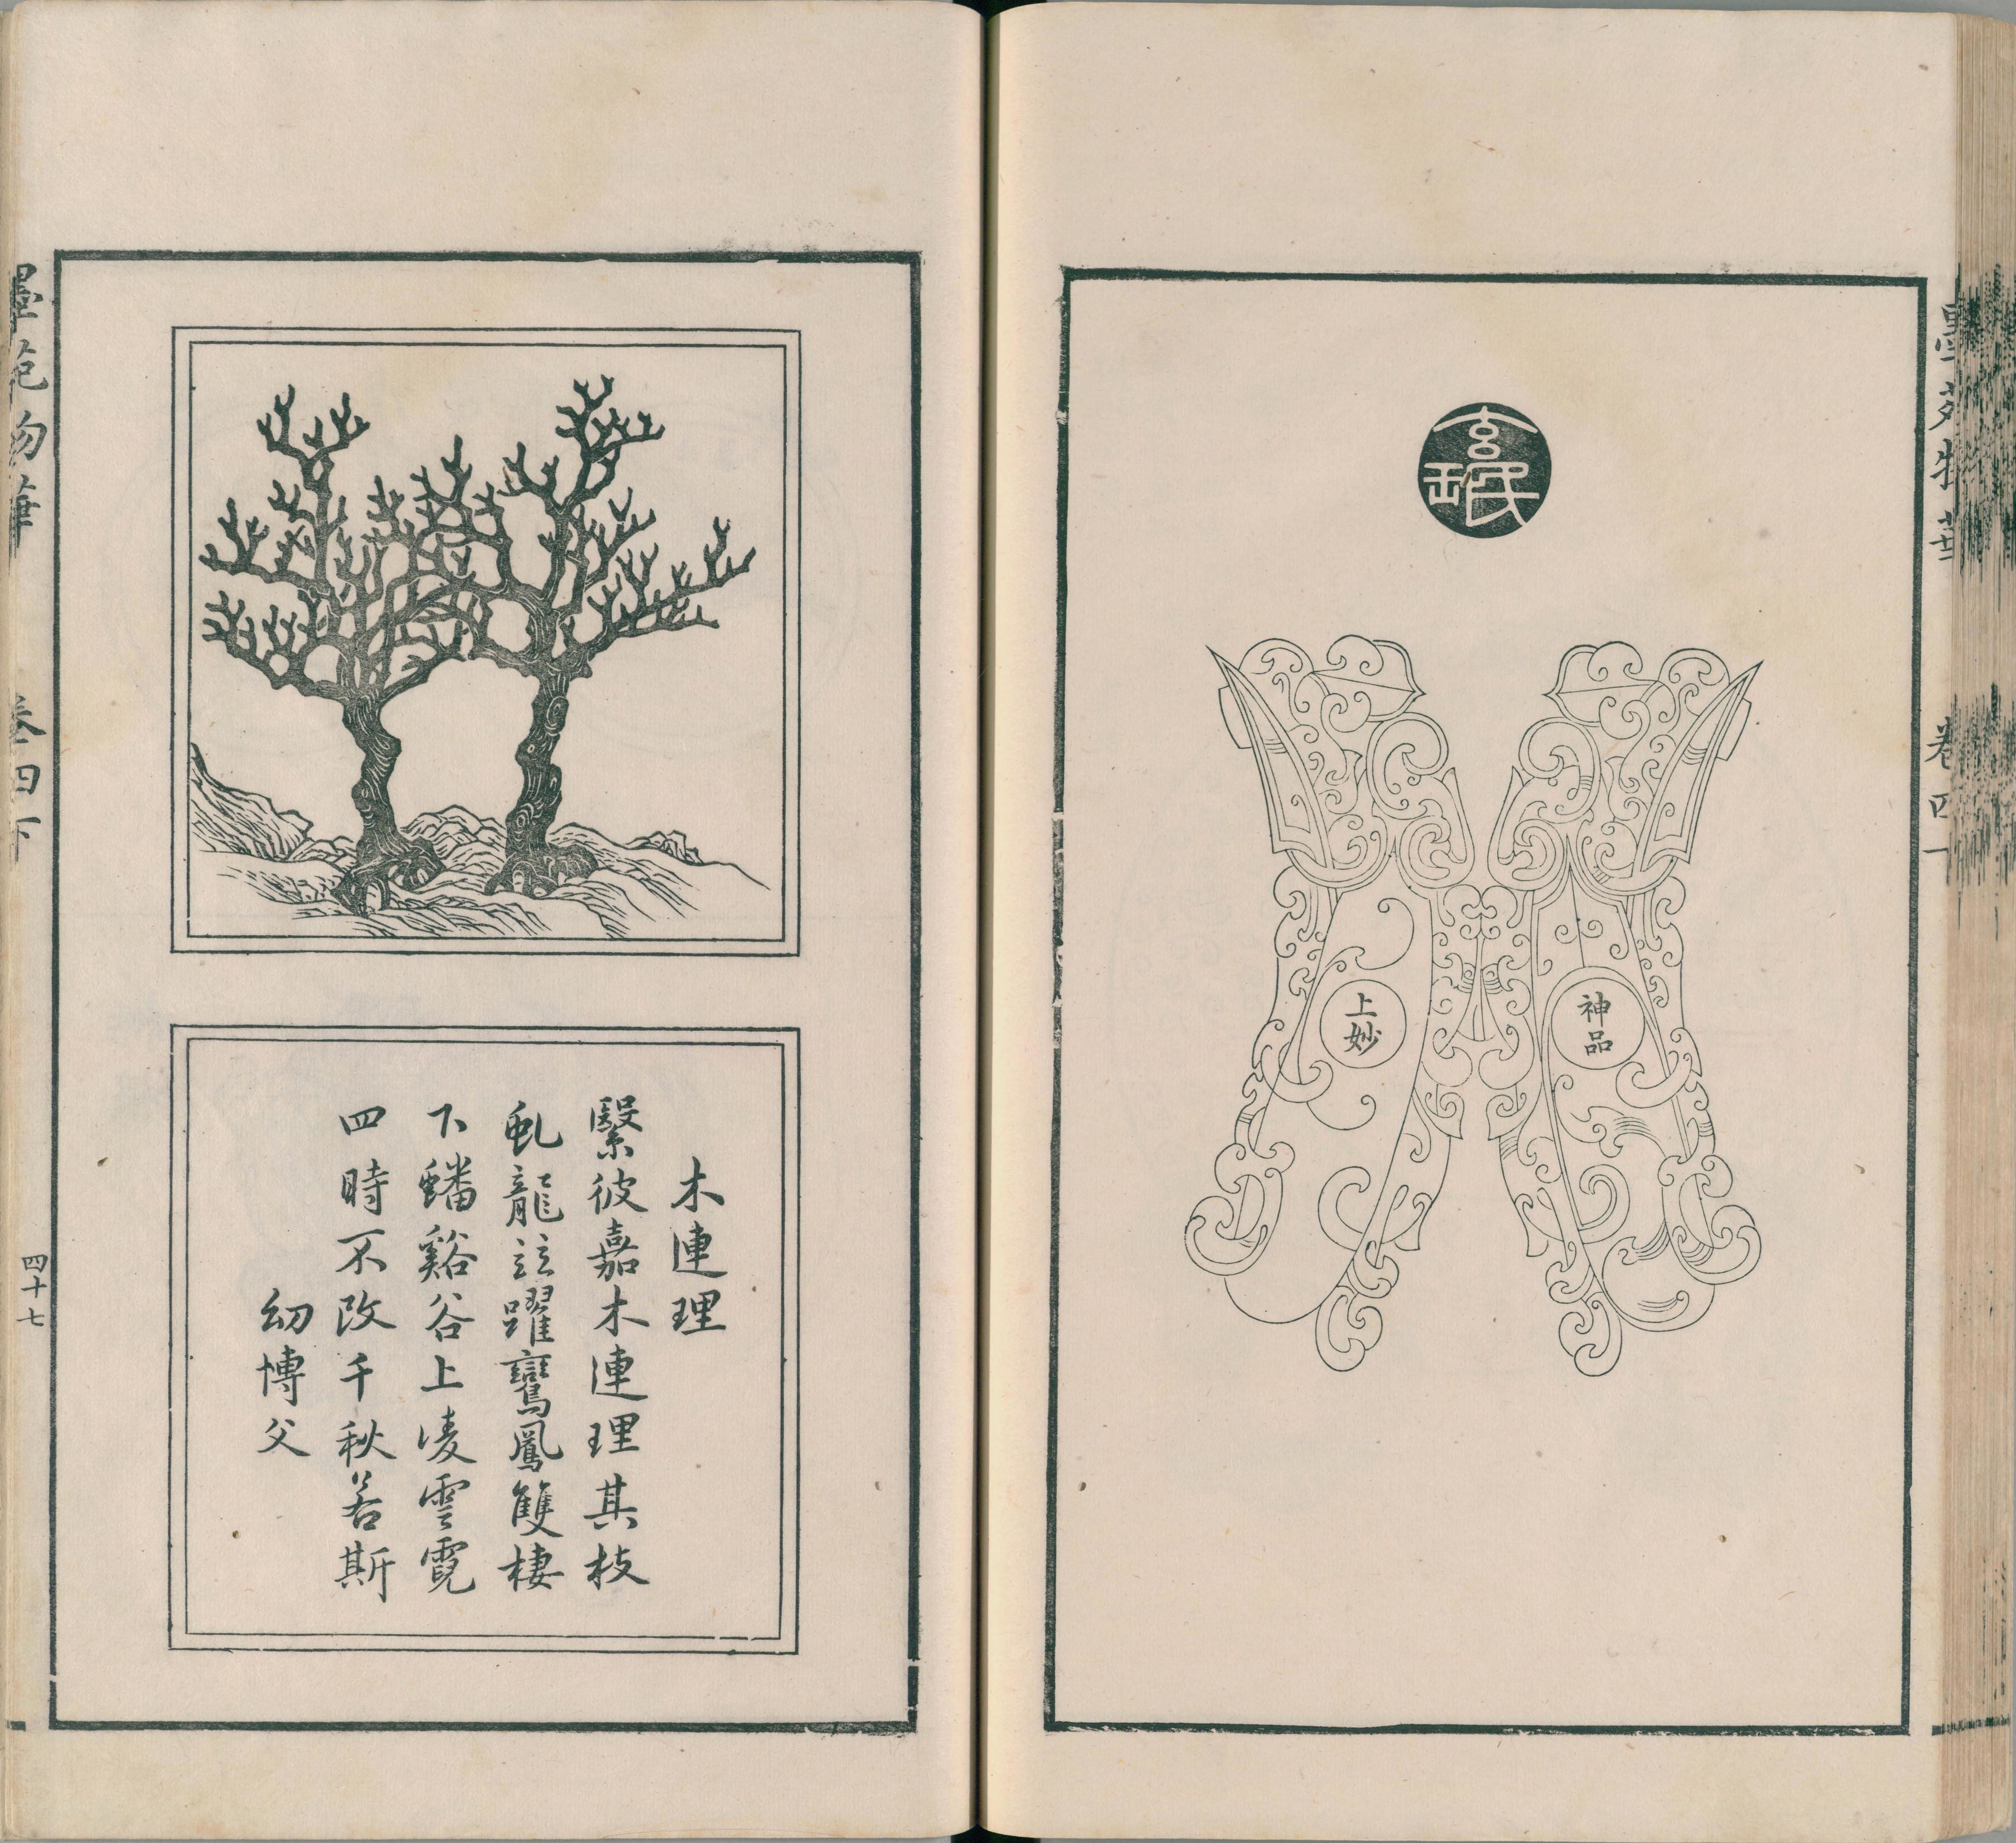 玄珉
神品
上妙
木連理
繄彼嘉木連理其枝
虬龍竝躍鸞鳳雙棲
下蟠谿谷上凌雲霓
四時不改千秋若斯
幼博父
墨苑物華 卷四下 四十七